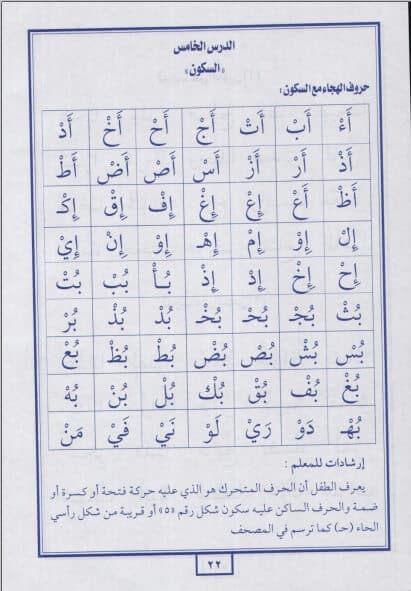 الدرس الخامس
«السكون»
حروف الهجاء مع السكون:
أَءْ أَبْ أَتْ أَجْ أَحْ أَخْ أَدْ
أَذْ أَرْ أَزْ أَسْ أَصْ أَضْ أَطْ
أَظْ أَعْ إِعْ إِغْ إِفْ إِقْ إِكْـ
إِلْ إِوْ إِمْ إِهْـ إِوْ إِنْ إِيْ
إِحْ إِخْ إِدْ إِذْ بُأْ بُبْ بُتْ
بُثْ بُجْ بُحْ بُخْ بُدْ بُذْ بُرْ
بُسْ بُشْ بُصْ بُضْ بُطْ بُظْ بُعْ
بُغْ بُفْ بُقْ بُكْ بُلْ بُنْ بُهْ
بُهْـ دَوْ رَيْ لَوْ نَيْ فَيْ مَنْ
إرشادات للمعلم :
يعرف الطفل أن الحرف المتحرك هو الذي عليه حركة فتحة أو كسرة أو
ضمة والحرف الساكن عليه سكون شكل رقم «٥» أو قريبة من شكل رأسي
الحاء (حـ) كما ترسم في المصحف
٢٢